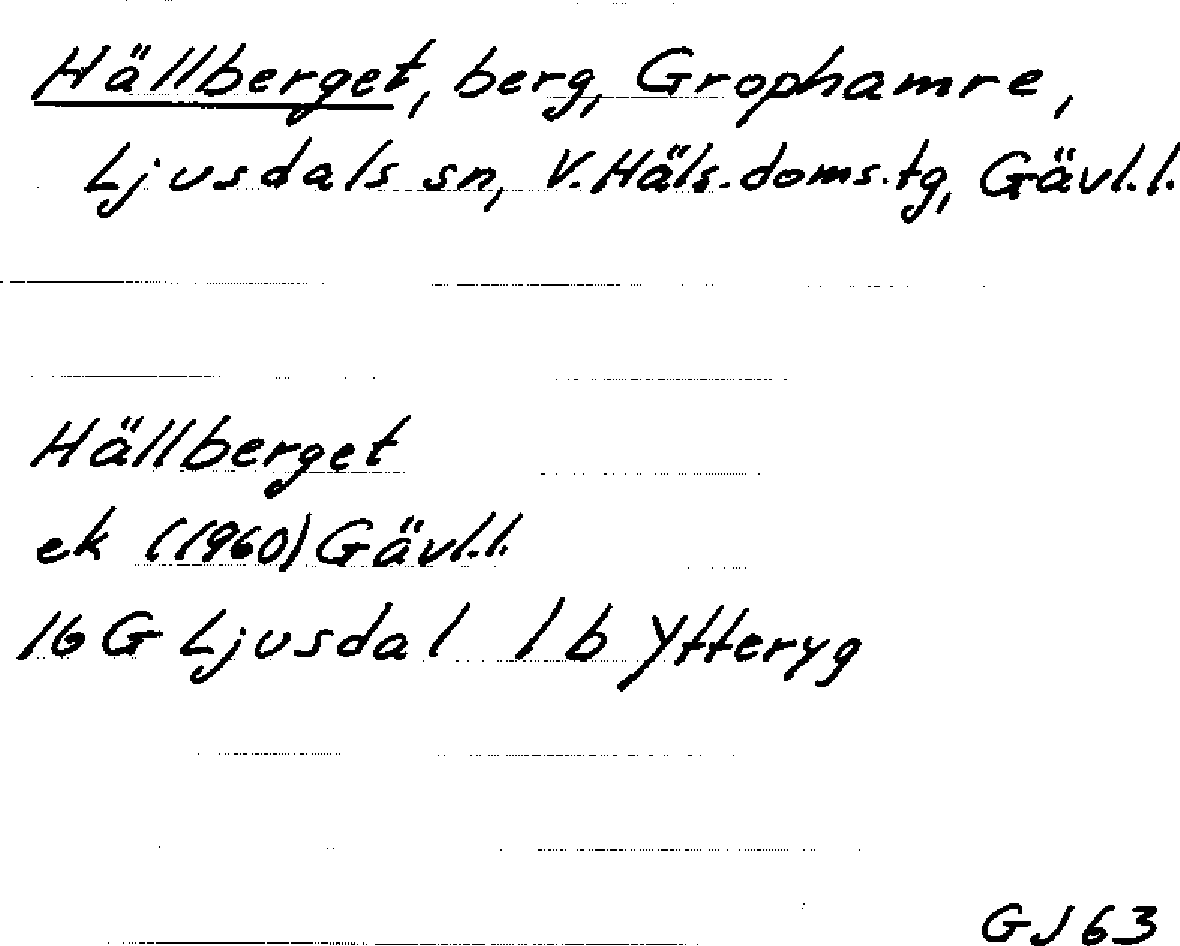 Hällberget, berg, Grophamre,
Ljusdals sn, V. Häls. doms. tg, Gävl. l.
Hällberget
ek (1960) Gävl. l.
16 G Ljusdal 1 b Ytteryg
GJ 63